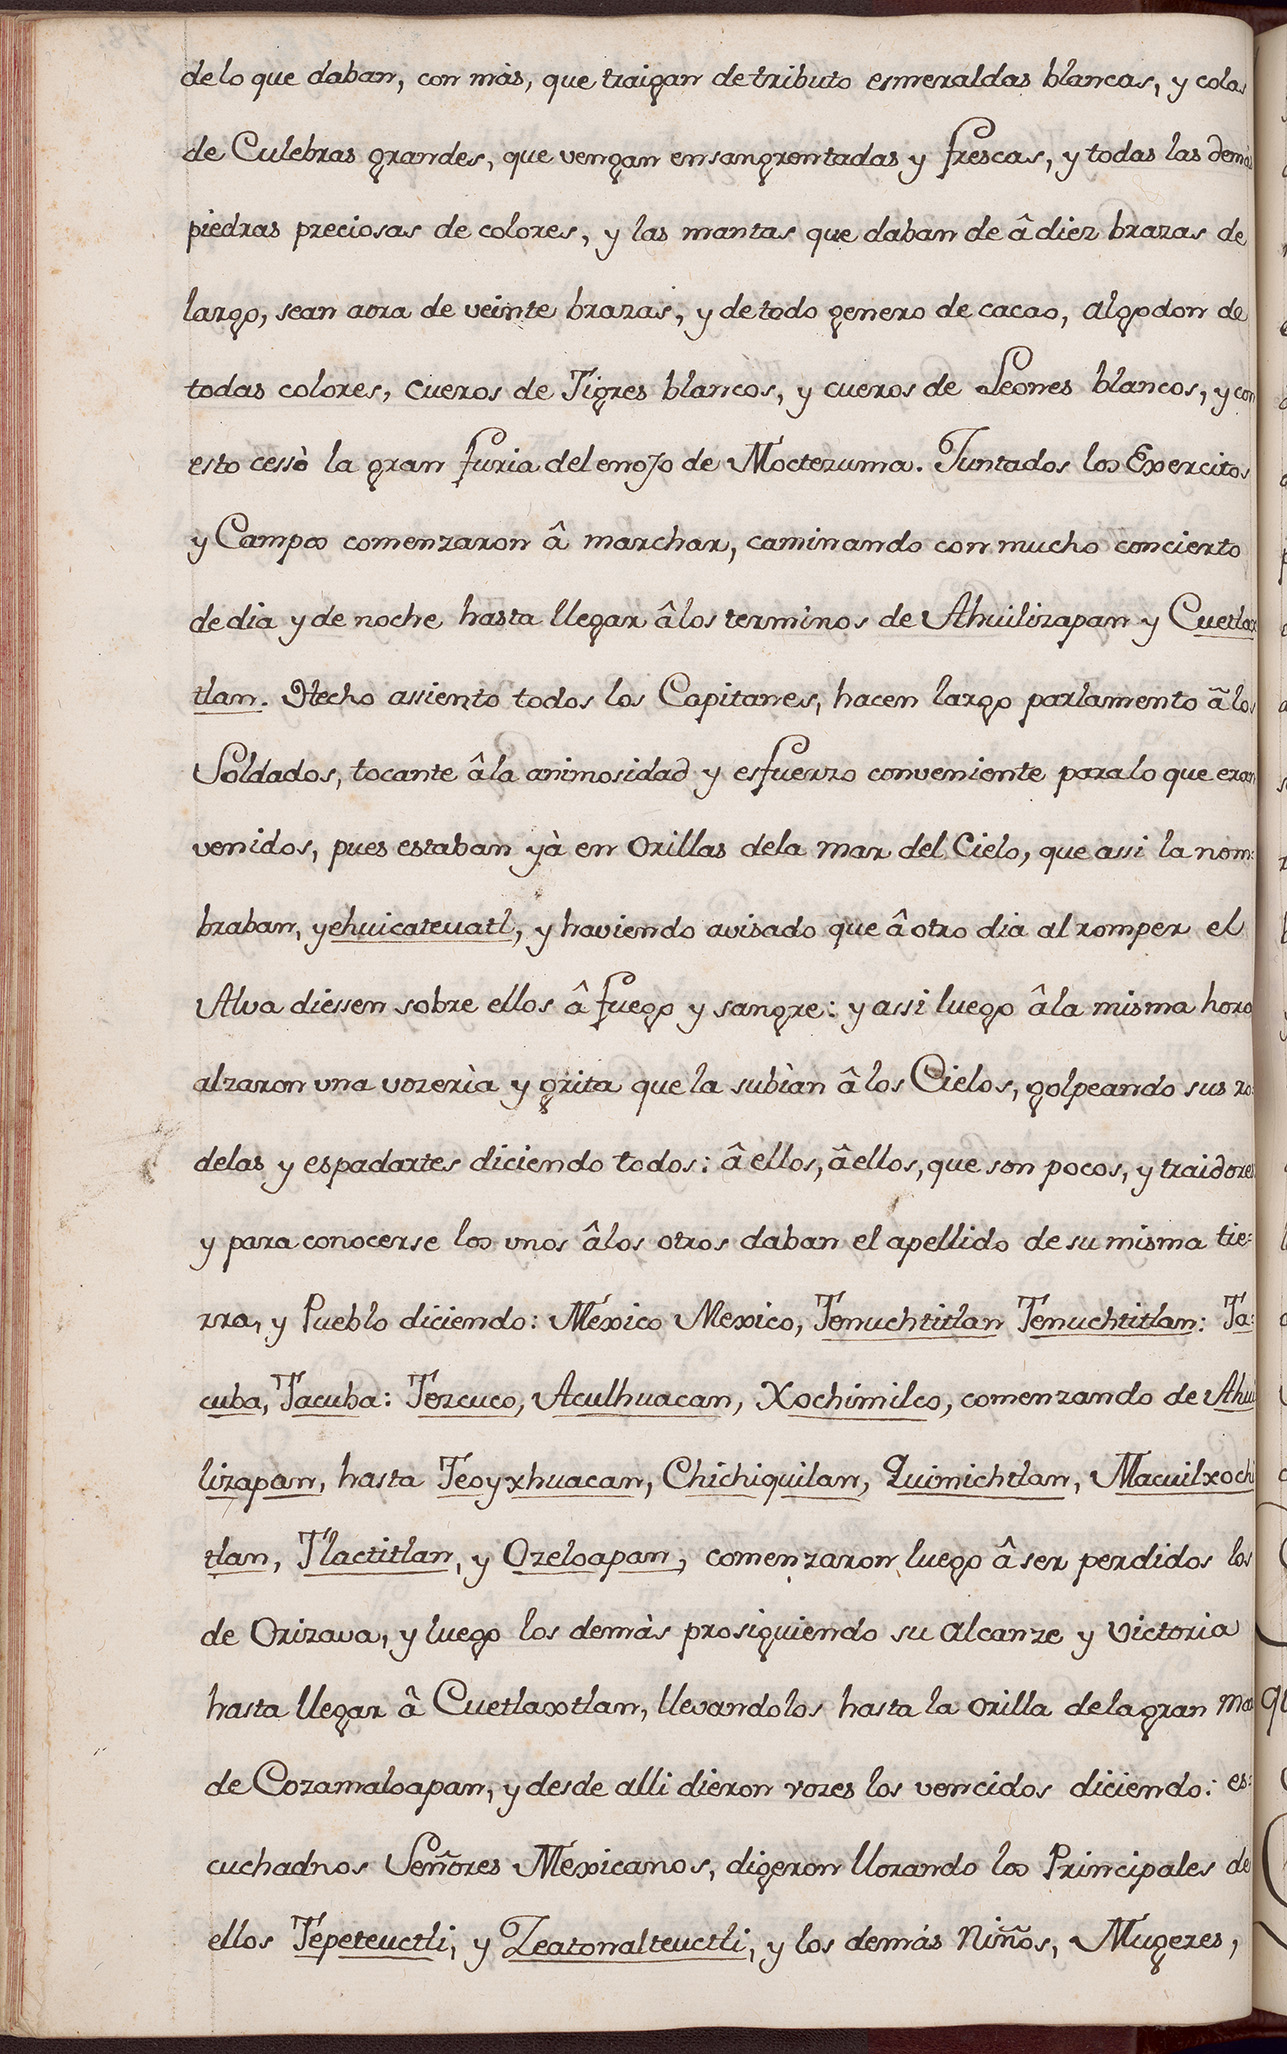 delo que daban, con màs, que traigan de tributo esmeraldas blancas, y colas
de Culebras grandes, que vengan ensangrentadas y frescas, y todas las demàs
piedras preciosas de colores, y las mantas que daban de â diez brazas de
largo, sean aora de veinte brazas, y de todo genero de cacao, algodon de
todas colores, cueros de Tigres blancos, y cueros de Leones blancos, y con
esto cessò la gran furia del enojo de Moctezuma. Juntados los Exercitos
y Campos comenzaron â marchar, caminando con mucho concierto
de dia y de noche hasta llegar âlos terminos de Ahuilizapan y Cuetlax
tlan. Hecho assiento todos los Capitanes, hacen largo parlamento â los
Soldados, tocante âla animosidad y esfuerzo conveniente paralo que eran
venidos, pues estaban yà en orillas dela mar del Cielo, que assi la nom:
braban, yehuicateuatl, y haviendo avisado que â otro dia al romper el
Alva diessen sobre ellos â fuego y sangre: y assi luego âla misma hora
alzaron una vozerìa y grita que la subìan â los Cielos, golpeando sus ro:
delas y espadartes diciendo todos: â ellos, âellos, que son pocos, y traidores
y para conocerse los unos âlos otros daban el apellido de su misma tie:
rra, y Pueblo diciendo: Mexico Mexico, Tenuchtitlan Tenuchtitlan: Ta:
cuba, Tacuba: Tezcuco, Aculhuacan, Xochimilco, comenzando de Ahui
lizapan, hasta Teoyxhuacan, Chichiquilan, Quimichtlan, Macuilxochi
tlan, Tlactitlan, y Ozeloapan, comenzaron luego â ser perdidos los
de Orizava, y luego los demàs prosiguiendo su alcanze y victoria
hasta llegar â Cuetlaxtlan, llevandolos hasta la orilla dela gran mar
de Cozamaloapan, y desde alli dieron vozes los vencidos diciendo: es:
cuchadnos Señores Mexicanos, digeron llorando los Principales de
ellos Tepeteuctli, y Zeatonalteuctli, y los demás Niños, Mugeres,